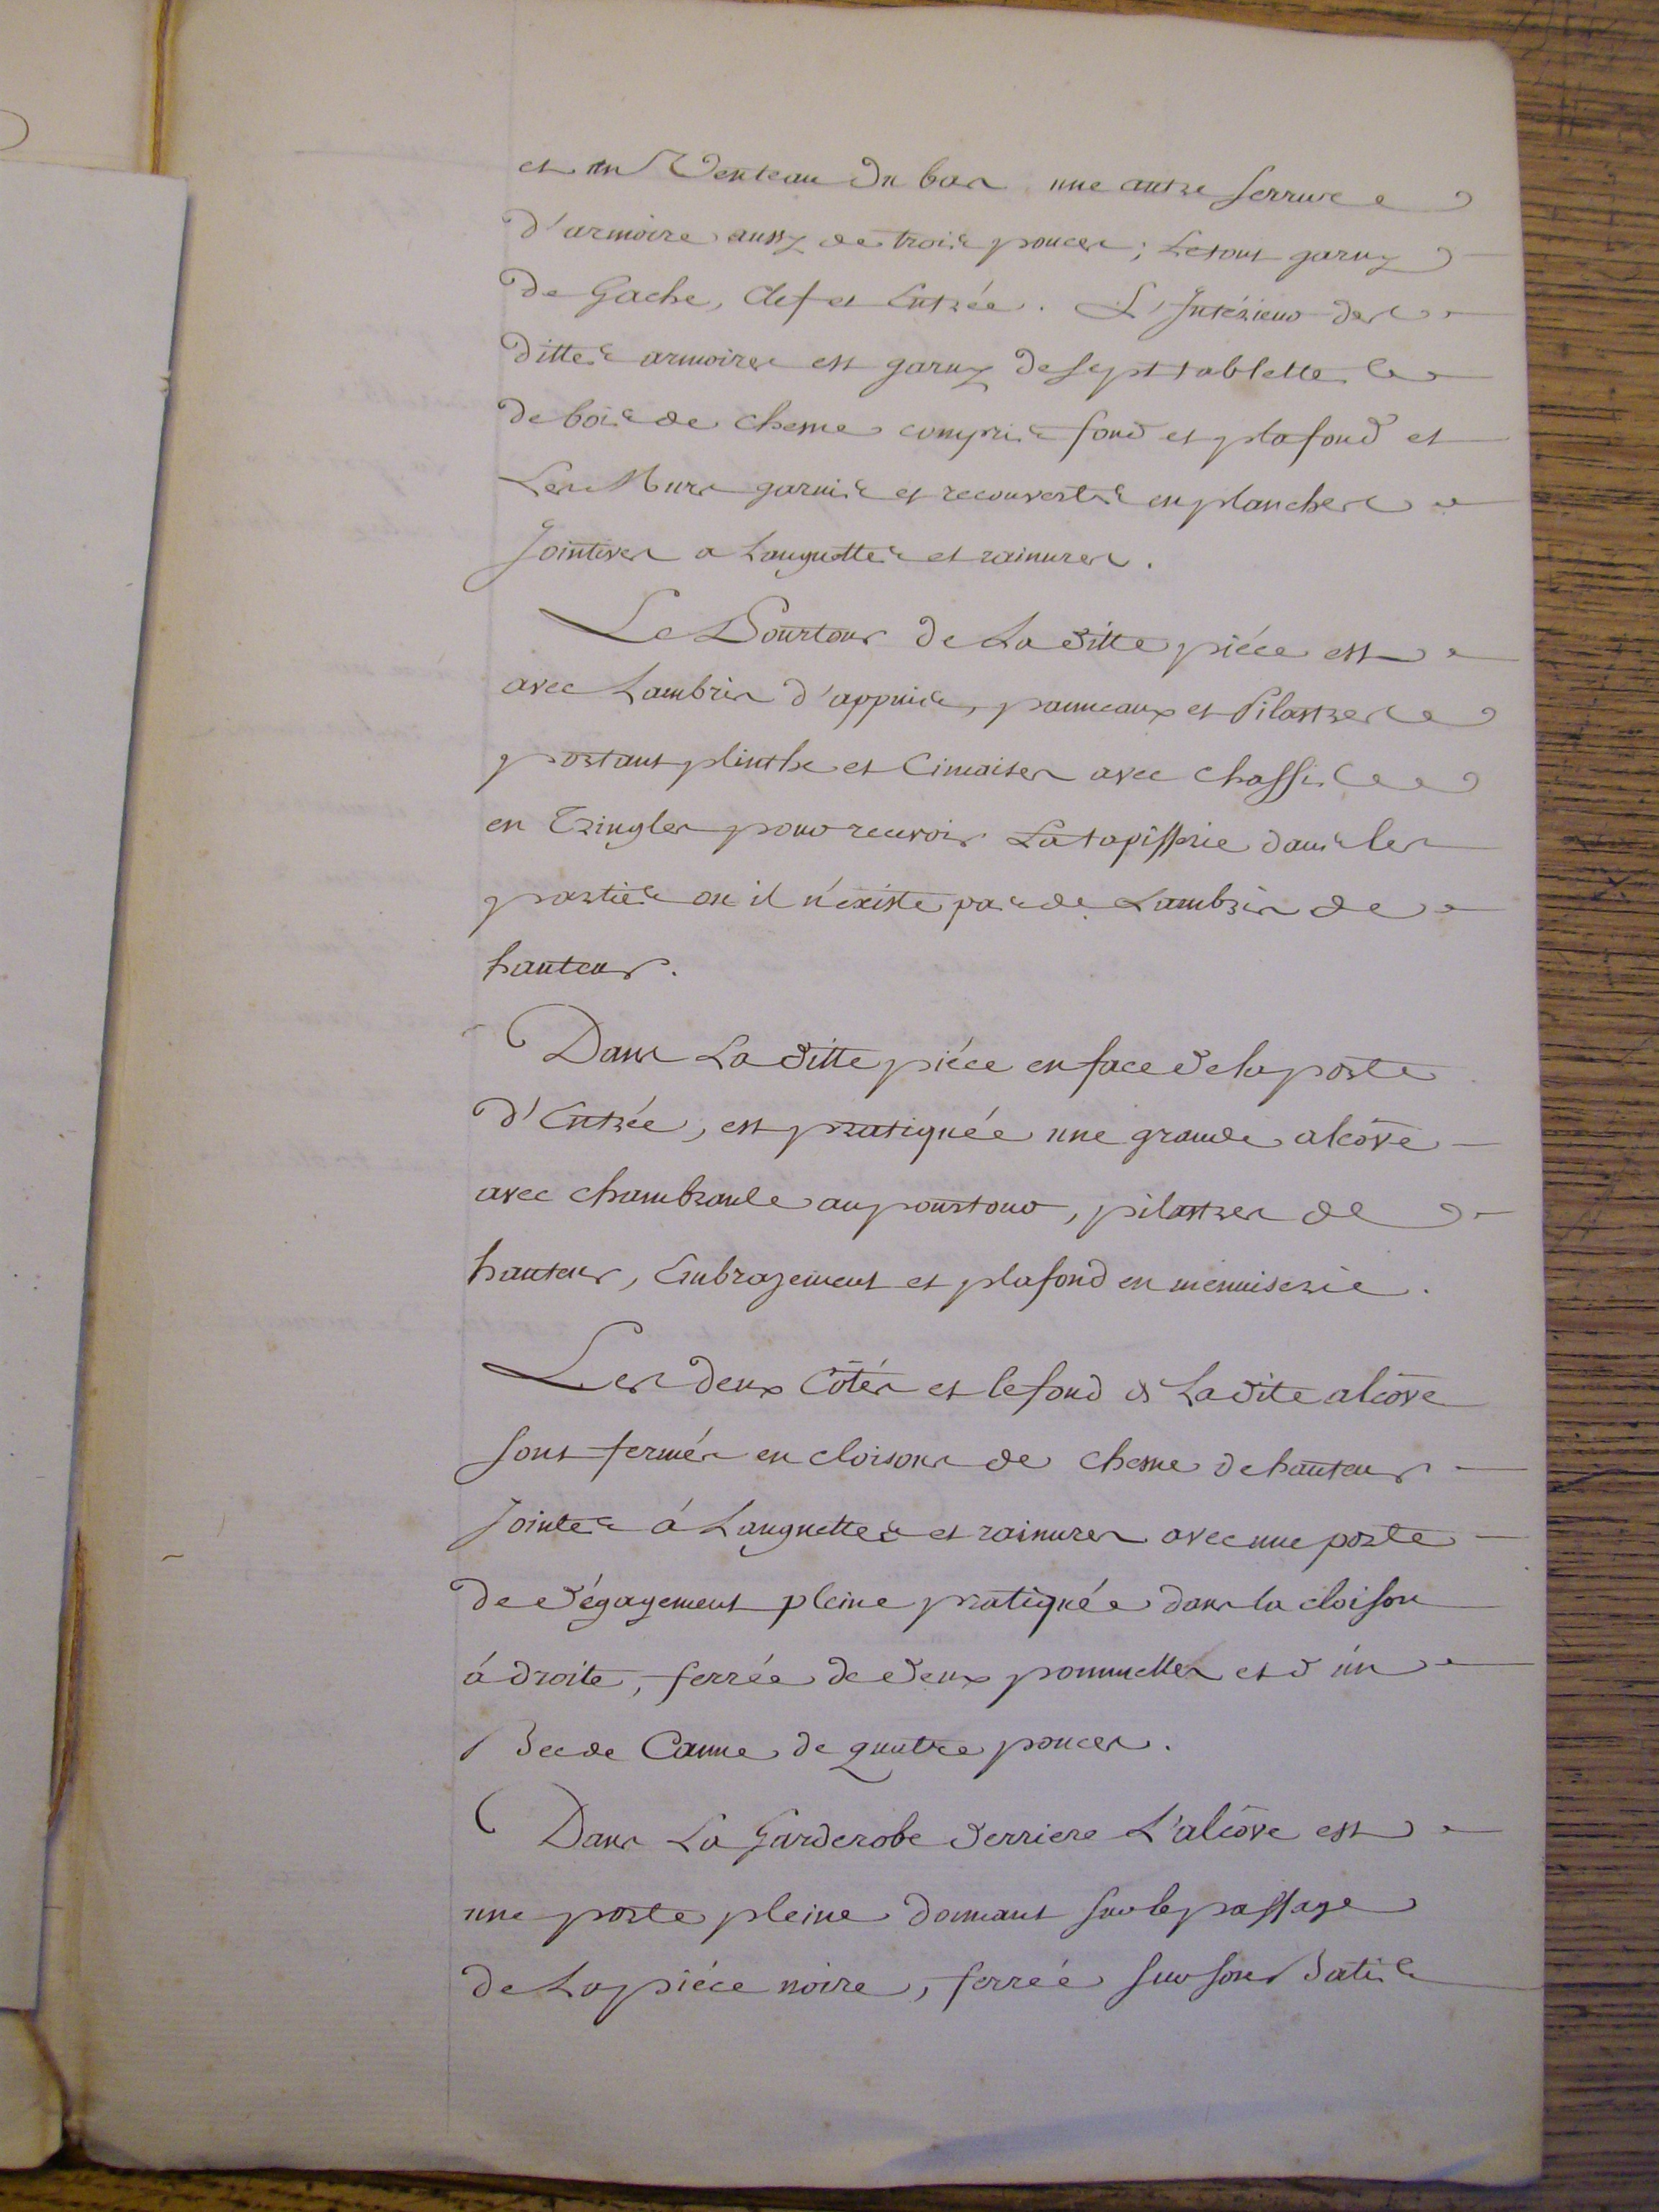 et un Venteau du bas une autre serrure
d'armoire aussy de trois pouces; Le tout garny
de Gache, Clef et Entrée. L'Intérieur des
dittes armoires est garny de sept tablettes
de bois de chesne compris fond et plafond et
Les Murs garnis et recouverts en planches
Jointives a Languettes et rainures.
Le Pourtour de La ditte piéce est
avec Lambris d'appuis, panneaux et Pilastres
portant plinthe et Cimaises avec chassis
en Tringles pour recevoir La tapisserie dans les
parties ou il n'éxiste pas de Lambris de
hauteur.
Dans La ditte piéce en face de la porte
d'Entrée, est pratiquée une grande alcôve
avec chambranle au pourtour, pilastres de
hauteur, Embrazement et plafond en menuiserie.
Les deux Côtés et le fond de La dite alcôve
sont fermés en cloisons de chesne de hauteur
Jointes á Languettes et rainures avec une porte
de dégagement pleine pratiquée dans la cloison
á droite, ferrée de deux pommelles et d'ún
Bec de Canne de quatre pouces.
Dans La Garderobe derriere L'alcôve est
une porte pleine donnant sur le passage
de La piéce noire, ferrée sur son Batis